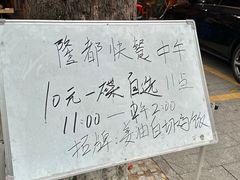 隆都快餐 中午
10元一碟自选 11点
11:00—中午2:00
招牌:姜油白切鸡饭